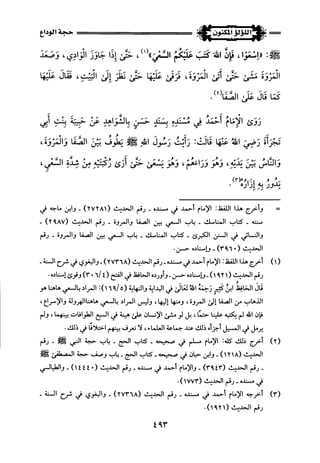 اللؤلؤ المكنون
حجة الوداع
ﷺ: «اسْعَوْا، فَإِنَّ اللهَ كَتَبَ عَلَيْكُمُ السَّعْيَ»(١)، حَتَّى إِذَا جَاوَزَ الْوَادِيَ، وَصَعَدَ
الْمَرْوَةَ مَشَى حَتَّى أَتَى الْمَرْوَةَ، فَرَقَى عَلَيْهَا حَتَّى نَظَرَ إِلَى الْبَيْتِ، فَقَالَ عَلَيْهَا
كَمَا قَالَ عَلَى الصَّفَا(٢).
رَوَى الْإِمَامُ أَحْمَدُ فِي مُسْنَدِهِ بِسَنَدٍ حَسَنٍ بِالشَّوَاهِدِ عَنْ حَبِيبَةَ بِنْتِ أَبِي
تَجْرَأَةَ رَضِيَ اللهُ عَنْهَا قَالَتْ: رَأَيْتُ رَسُولَ اللهِ ﷺ يَطُوفُ بَيْنَ الصَّفَا وَالْمَرْوَةِ،
وَالنَّاسُ بَيْنَ يَدَيْهِ، وَهُوَ وَرَاءَهُمْ، وَهُوَ يَسْعَى حَتَّى أَرَى رُكْبَتَيْهِ مِنْ شِدَّةِ السَّعْيِ،
يَدُورُ بِهِ إِزَارُهُ(٣).
= وأخرج هذا اللفظ: الإمام أحمد في مسنده - رقم الحديث (٢٧٢٨١) - وابن ماجه في
سننه - كتاب المناسك - باب السعي بين الصفا والمروة - رقم الحديث (٢٩٨٧) -
والنسائي في السنن الكبرى - كتاب المناسك - باب السعي بين الصفا والمروة - رقم
الحديث (٣٩٦٠) - وإسناده حسن.
(١) أخرج هذا اللفظ: الإمام أحمد في مسنده - رقم الحديث (٢٧٣٦٨) - والبغوي في شرح السنة -
رقم الحديث (١٩٢١) - وإسناده حسن - وأورده الحافظ في الفتح (٣٠٦/٤) وقوى إسناده.
قَالَ الحَافِظُ ابنُ كَثِيرٍ رَحِمَهُ اللهُ تَعَالَى في البداية والنهاية (١٦٩/٥): المراد بالسعي هاهنا هو
الذهاب من الصفا إلى المروة، ومنها إليها، وليس المراد بالسعي هاهنا الهرولة والإسراع،
فإن الله لم يكتبه علينا حتمًا، بل لو مشى الإنسان على هينة في السبع الطوافات بينهما، ولم
يرمل في المسيل أجزأه ذلك عند جماعة العلماء، لا نعرف بينهم اختلافًا في ذلك.
(٢) أخرج ذلك كله: الإمام مسلم في صحيحه - كتاب الحج - باب حجة النبي ﷺ - رقم
الحديث (١٢١٨) - وابن حبان في صحيحه - كتاب الحج - باب وصف حجة المصطفى ﷺ
- رقم الحديث (٣٩٤٣) - والإمام أحمد في مسنده - رقم الحديث (١٤٤٤٠) - والطيالسي
في مسنده - رقم الحديث (١٧٧٣).
(٣) أخرجه الإمام أحمد في مسنده - رقم الحديث (٢٧٣٦٨) - والبغوي في شرح السنة -
رقم الحديث (١٩٢١).
٤٩٣